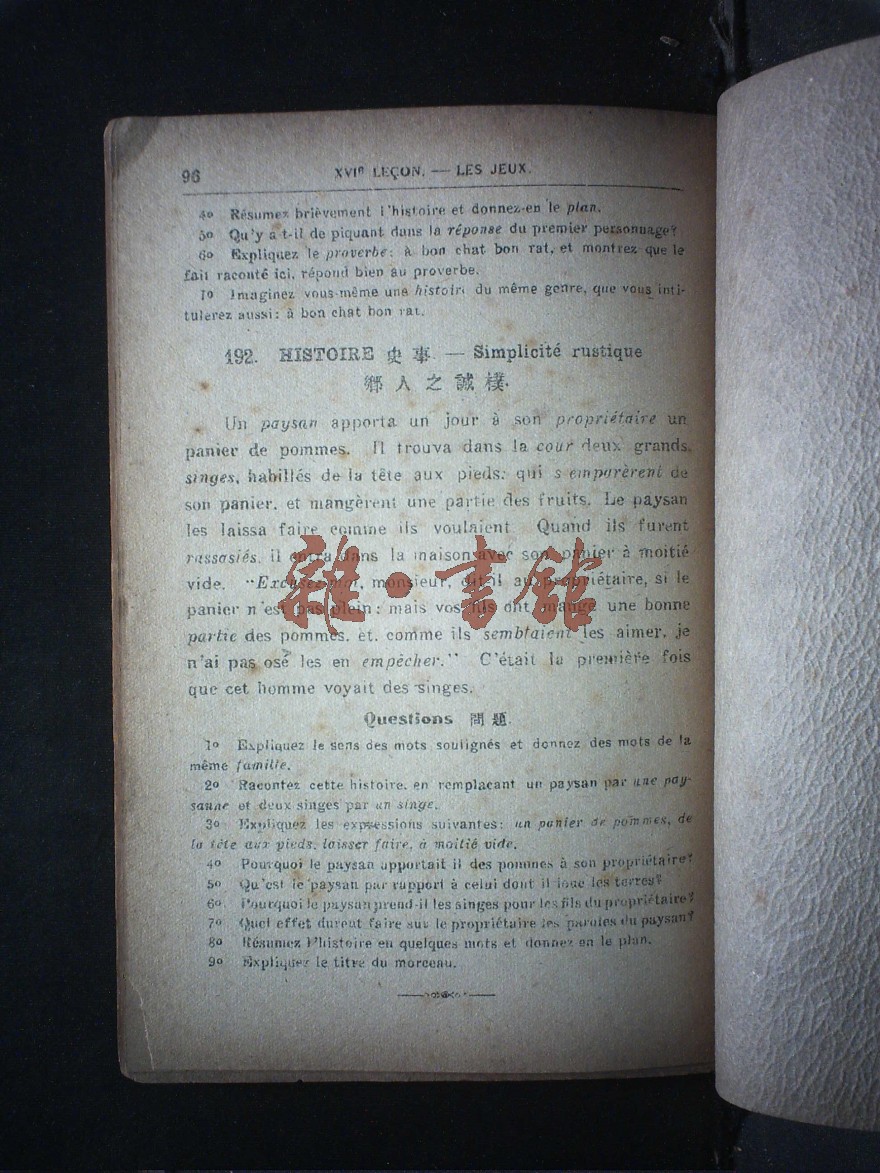 96 XVIe LEÇON. — LES JEUX.
4o Résumez brièvement l'histoire et donnez-en le plan.
5o Qu'y a t-il de piquant dans la réponse du premier personnage?
6o Expliquez le proverbe: à bon chat bon rat, et montrez que le
fait raconté ici, répond bien au proverbe.
7o Imaginez vous-même une histoire du même genre, que vous inti-
tulerez aussi: à bon chat bon rat.
192. HISTOIRE 史事. — Simplicité rustique
鄉人之誠樸.
Un paysan apporta un jour à son propriétaire un
panier de pommes. Il trouva dans la cour deux grands
singes, habillés de la tête aux pieds; qui s'emparèrent de
son panier, et mangèrent une partie des fruits. Le paysan
les laissa faire comme ils voulaient. Quand ils furent
rassasiés, il entra dans la maison avec son panier à moitié
vide. "Excusez-moi, monsieur, dit-il au propriétaire, si le
panier n'est pas plein; mais vos fils ont mangé une bonne
partie des pommes, et, comme ils semblaient les aimer, je
n'ai pas osé les en empêcher." C'était la première fois
que cet homme voyait des singes.
Questions 問題.
1o Expliquez le sens des mots soulignés et donnez des mots de la
même famille.
2o Racontez cette histoire, en remplacant un paysan par une pay-
sanne et deux singes par un singe.
3o Expliquez les expressions suivantes: un panier de pommes, de
la tête aux pieds, laisser faire, à moitié vide.
4o Pourquoi le paysan apportait il des pommes à son propriétaire?
5o Qu'est le paysan par rapport à celui dont il loue les terres?
6o. Pourquoi le paysan prend-il les singes pour les fils du propriétaire?
7o Quel effet durent faire sur le propriétaire les paroles du paysan?
8o Résumez l'histoire en quelques mots et donnez en le plan.
9o Expliquez le titre du morceau.
雜·書館